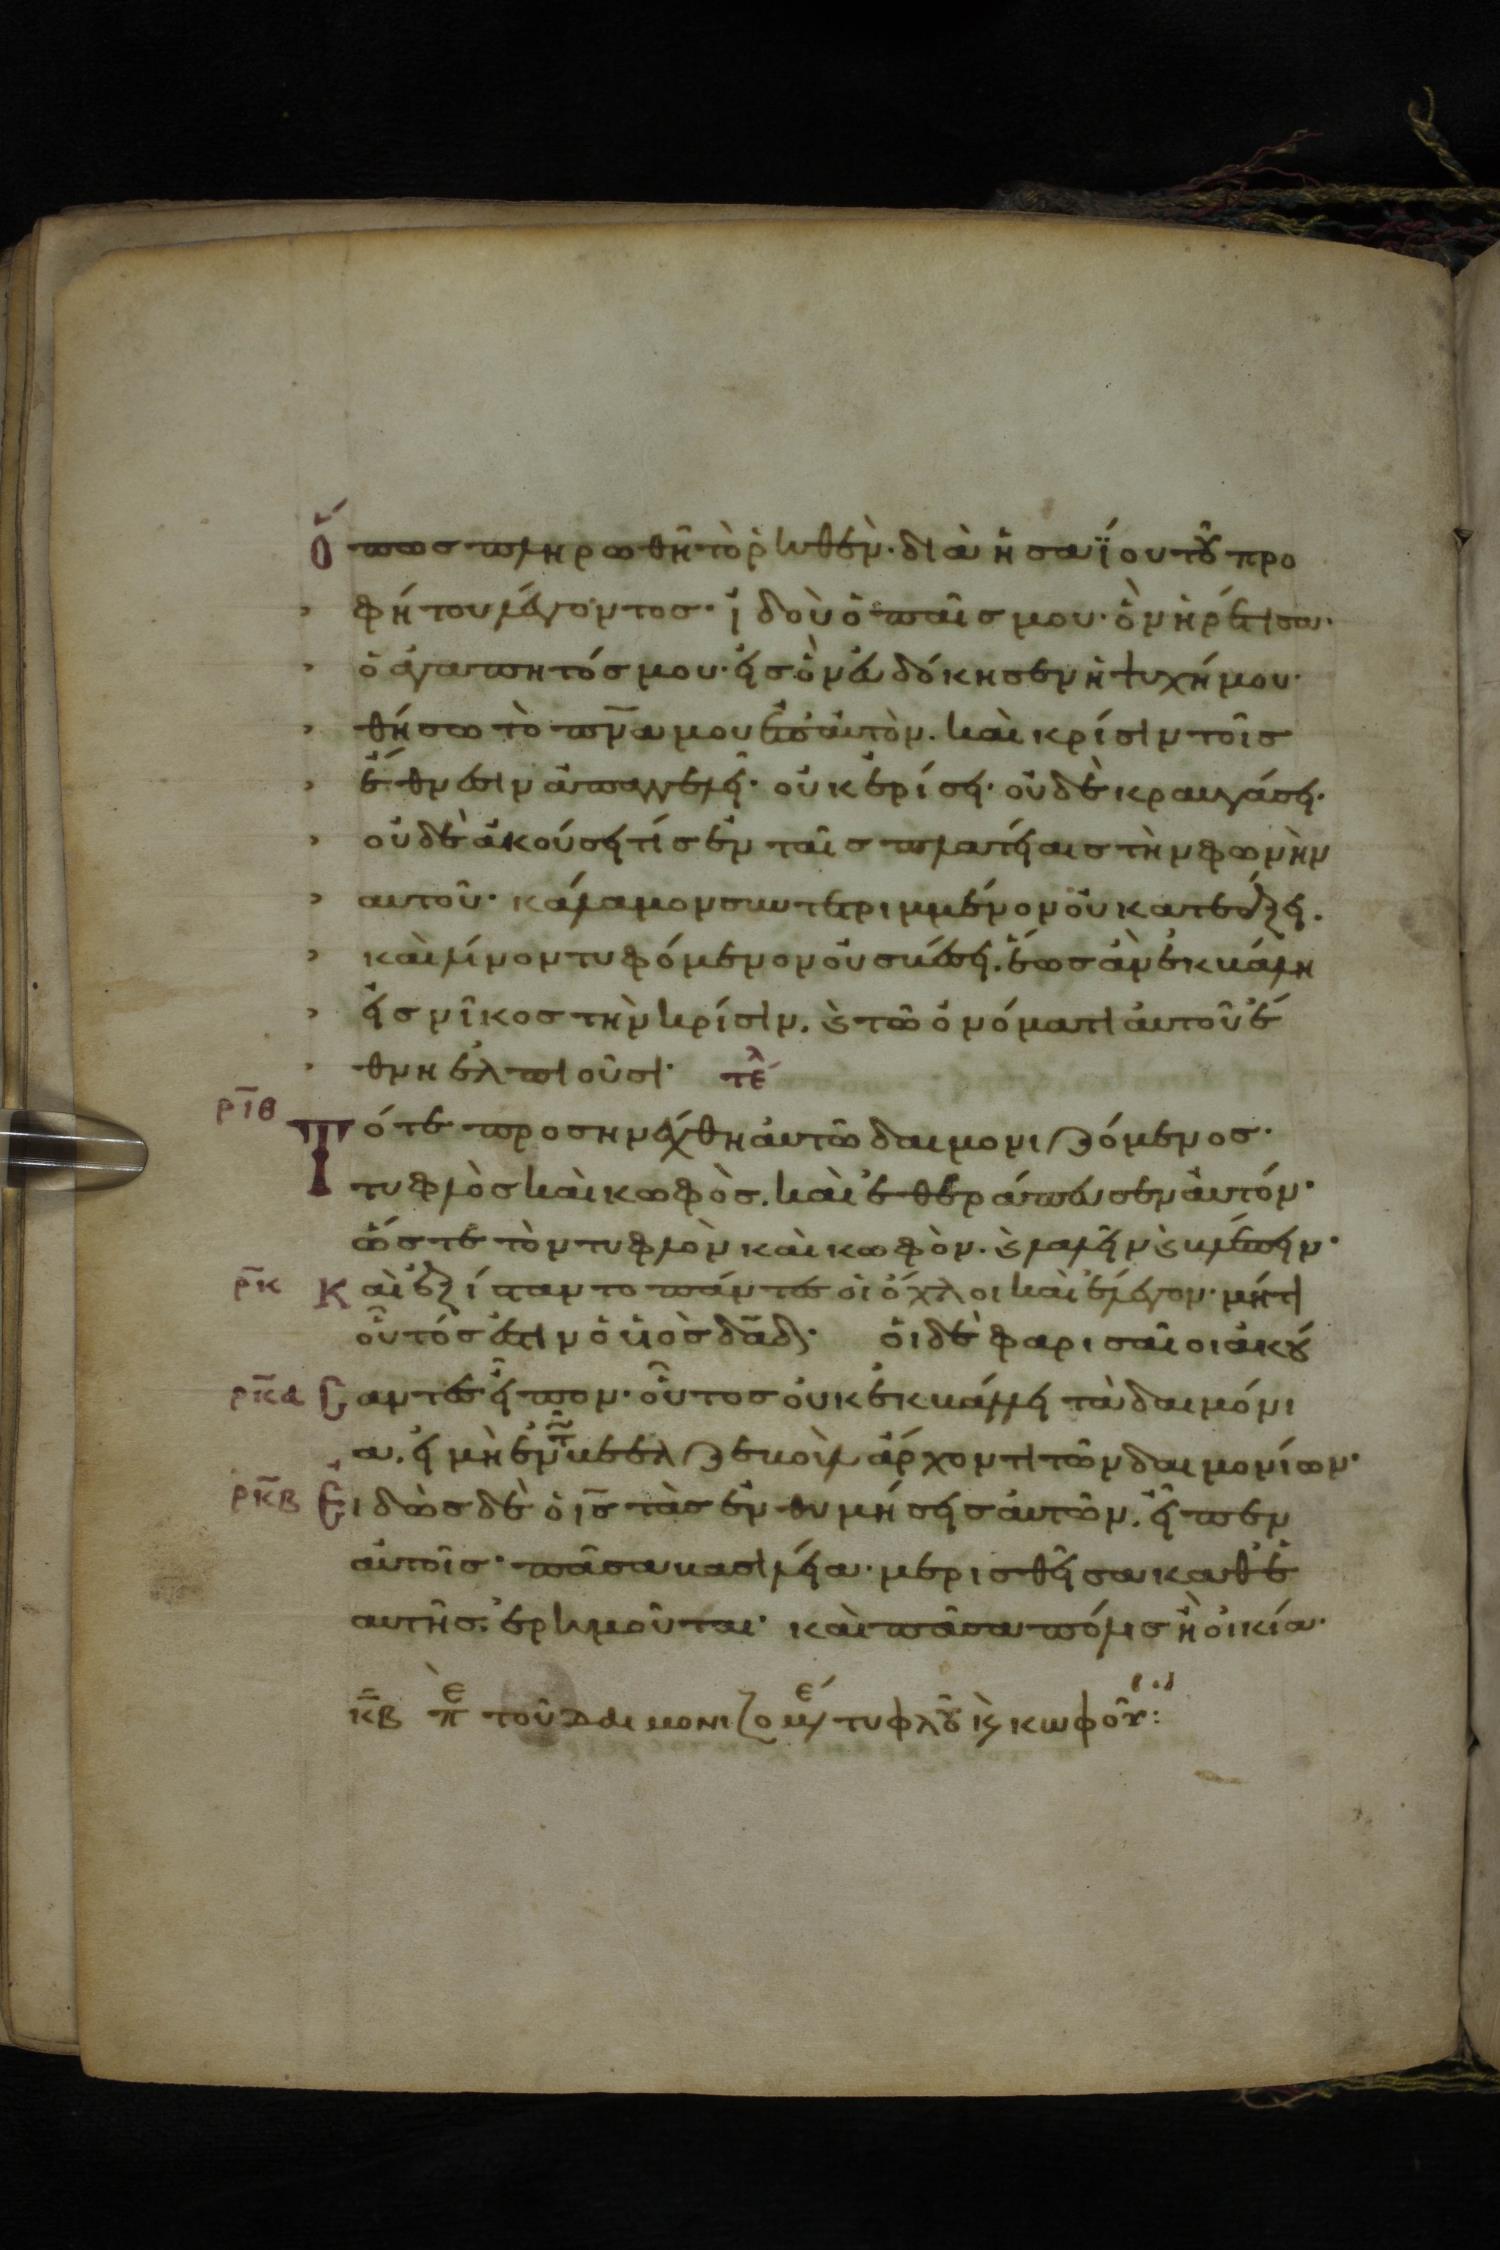 Ὅπως πληρωθῆ τὸ ῥηθὲν· διὰ ἡσαΐου τοῦ προ
φήτου λέγοντος· ἰδοὺ ὁ παῖς μου· ὃν ἡρέτισα·
ὁ ἀγαπητός μου· εἰς ὃν εὐδόκησεν ἡ ψυχή μου·
θήσω τὸ πν̅α μου ἐπ' αὐτὸν. καὶ κρίσιν τοῖς
ἔθνεσιν ἀπαγγελεῖ· οὐκ ἐρίσει· οὐδὲ κραυγάσει·
οὐδὲ ἀκούσει τίς ἐν ταῖς πλατείαις τὴν φωνὴν
αυτοῦ· κάλαμον συντετριμμένον οὐ κατεάξει.
καὶ λίνον τυφόμενον οὐ σβέσει. ἕως ἀν ἐκβάλη
εἰς νῖκος τὴν κρίσιν. ϗ τῶ ὀνόματι αὐτοῦ ἔ
θνη ἐλπιοῦσι· τε^λ
ρ̅ι̅θ Τότε προσηνέχθη αὐτῶ δαιμονιζόμενος·
τυφλὸς καὶ κωφὸς. καὶ ἐθεράπευσεν αὐτόν·
ὥστε τὸν τυφλὸν καὶ κωφὸν. ϗ λαλεῖν ϗ βλέπειν·
ρ̅κ Καὶ ἐξίσταντο πάντες οἱ ὄχλοι καὶ ἔλεγον· μήτι
οὗτός ἐστιν ὁ υἱὸς δα̅δ· οἱ δὲ φαρισαῖοι ἀκού
ρ̅κ̅α Σαντες εἶπον· οὗτος οὐκ ἐκβάλλει τὰ δαιμόνι
α. εἰ μὴ ἐν τῶ βεελζεβοὺλ ἄρχοντι τῶν δαιμονίων·
ρ̅κ̅β Εἰδὼς δὲ ὁ ι̅ς τὰς ἐνθυμήσεις αὐτῶν. εἶπεν
αὐτοῖς· πᾶσα βασιλεία· μερισθεῖσα καθ' ἑ
αυτῆς. ἐρημοῦται· καὶ πᾶσα πόλις ἢ οἰκία·
κ̅β πε τοῦ δαιμονιζομέ τυφλοῦ ϗ κωφοῦ: